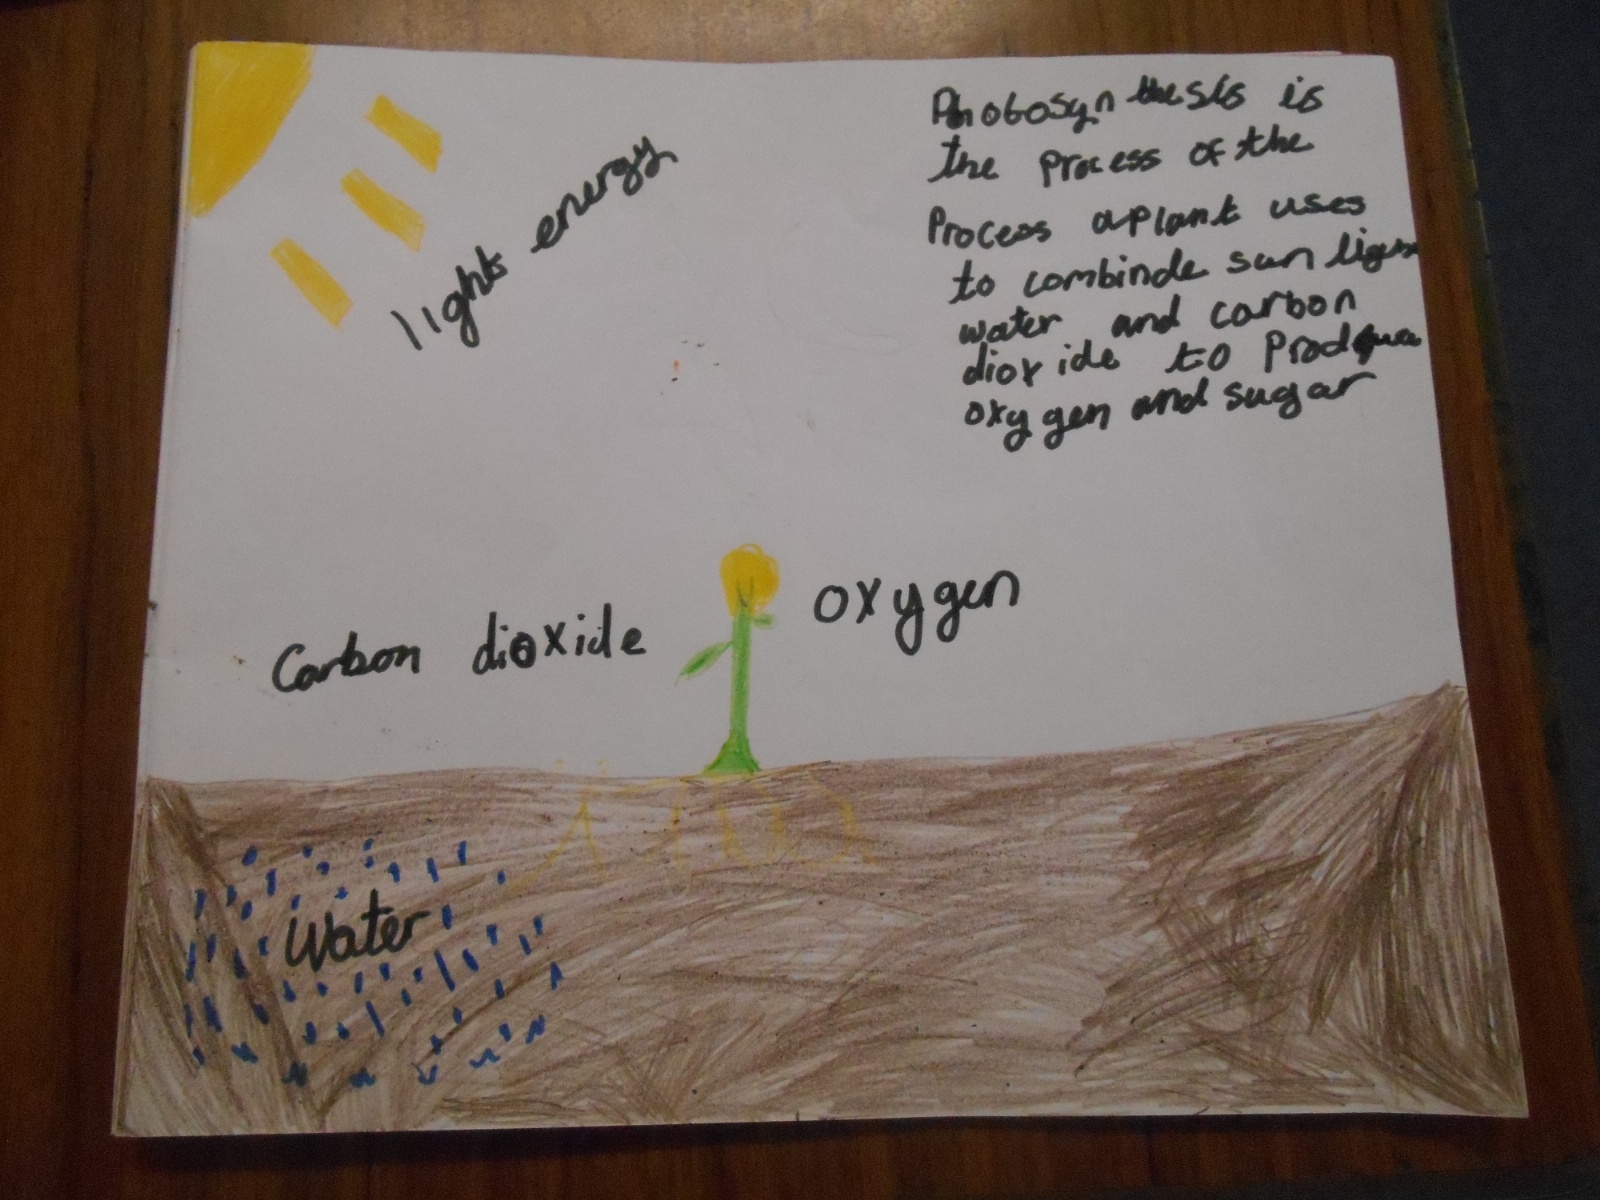 Photosynthesis is
the process of the
Process a plant uses
to combinde sun light
water and carbon
dioxide to produce
oxygen and sugar
light energy
Carbon dioxide
oxygen
Water